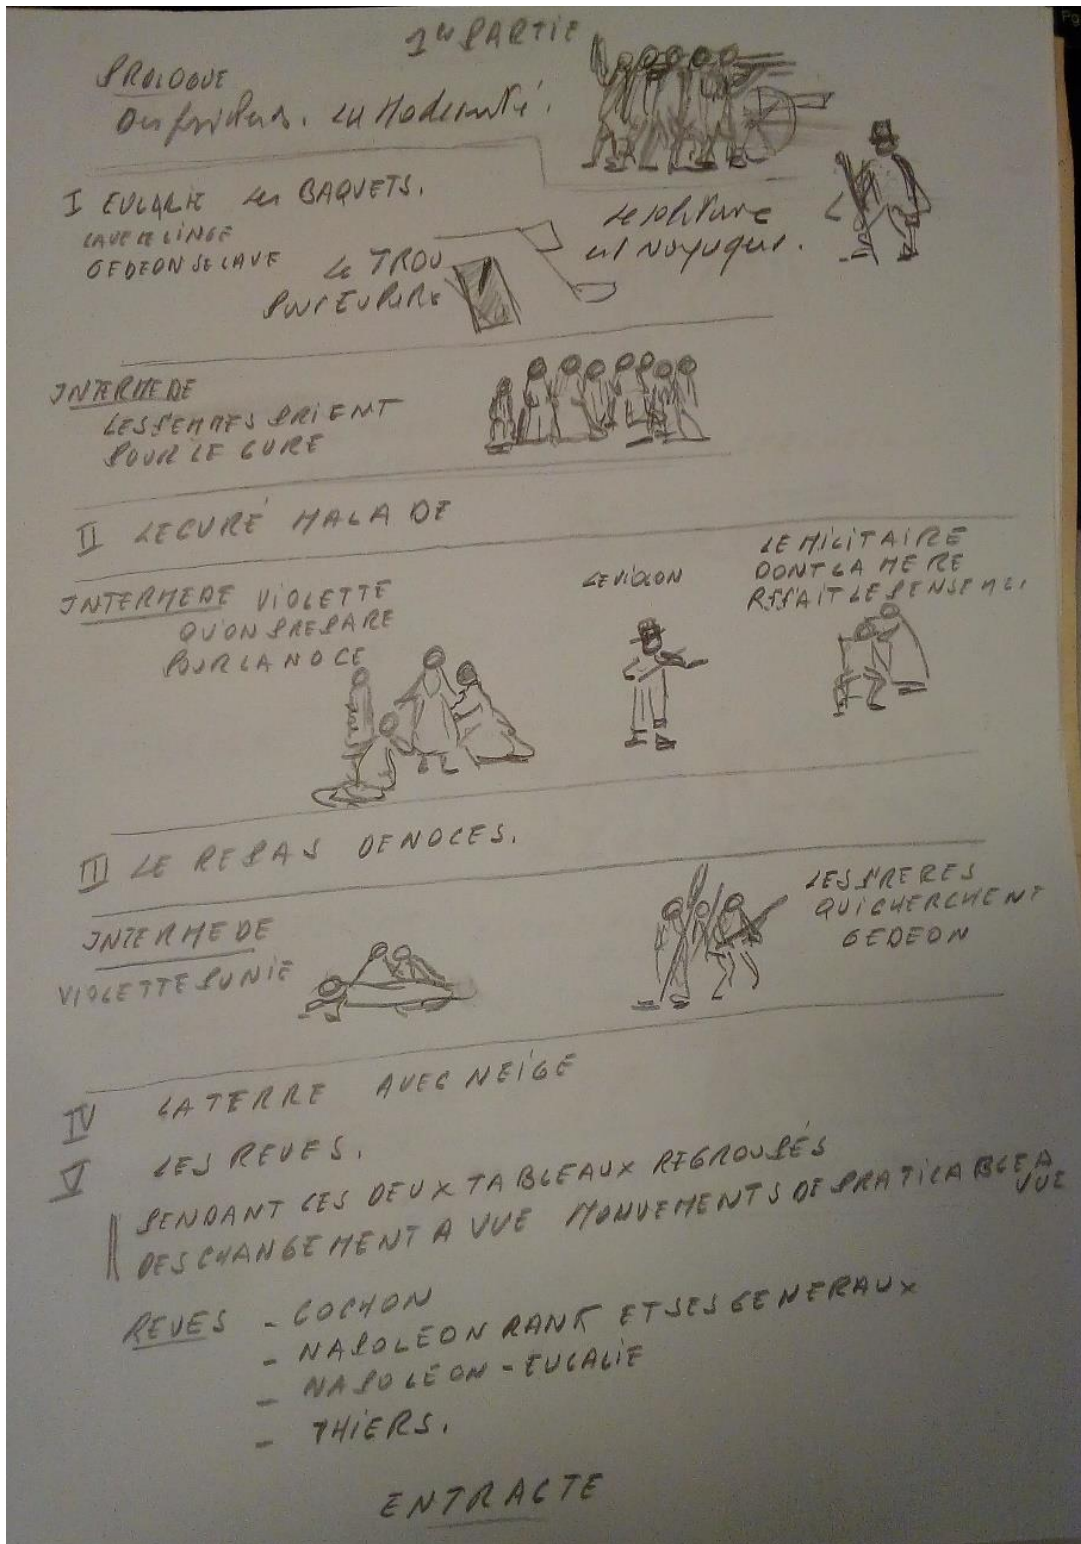 1ère PARTIE
PROLOGUE
I EULALIE les BAQUETS.
LAVE LE LINGE
GEDEON SE LAVE
Le TROU
est
INTERMEDE
LES FEMMES PRIENT
POUR LE CURE
II LE CURÉ MALADE
INTERMEDE VIOLETTE
QU'ON PREPARE
POUR LA NOCE
LE VIOLON
LE MILITAIRE
DONT LA MERE
III LE REPAS DE NOCES.
INTERMEDE
VIOLETTE PUNIE
LES FRERES
QUI CHERCHENT
GEDEON
IV LA TERRE AVEC NEIGE
V LES REVES.
PENDANT LES DEUX TABLEAUX REGROUPÉS
DES CHANGEMENT A VUE MOUVEMENTS DE PRATICABLE A
VUE
REVES - COCHON
- NAPOLEON RANK ET SES GENERAUX
- NAPOLEON - EULALIE
- THIERS.
ENTRACTE